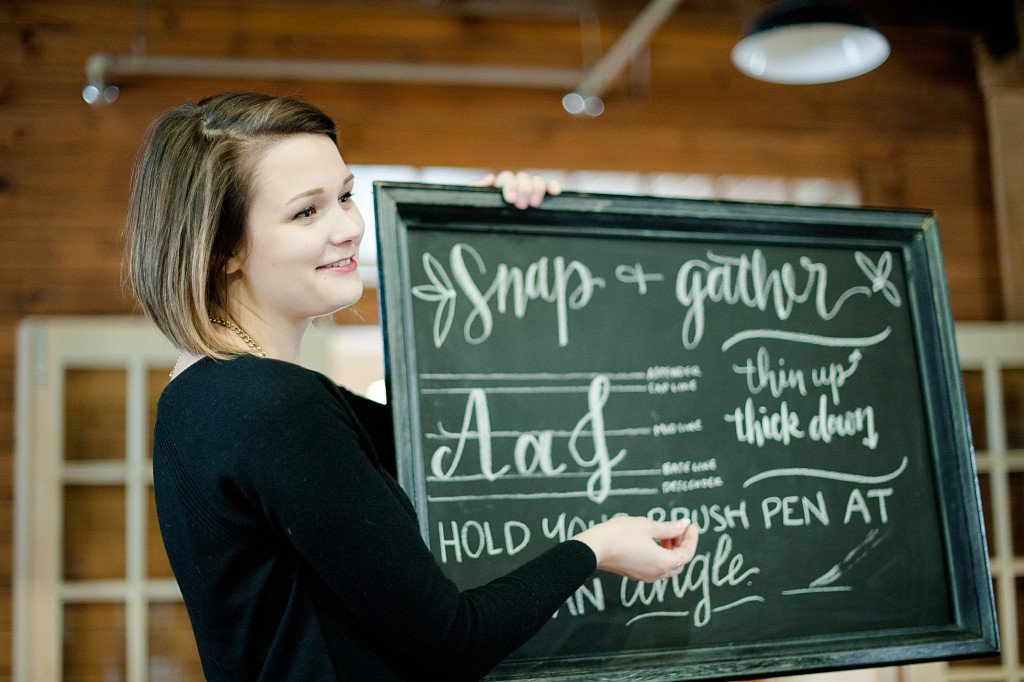 Snap + gather
ASCENDER
CAP LINE
A a f
MID LINE
BASELINE
DESCENDER
thin up
thick down
HOLD YOUR BRUSH PEN AT
AN angle